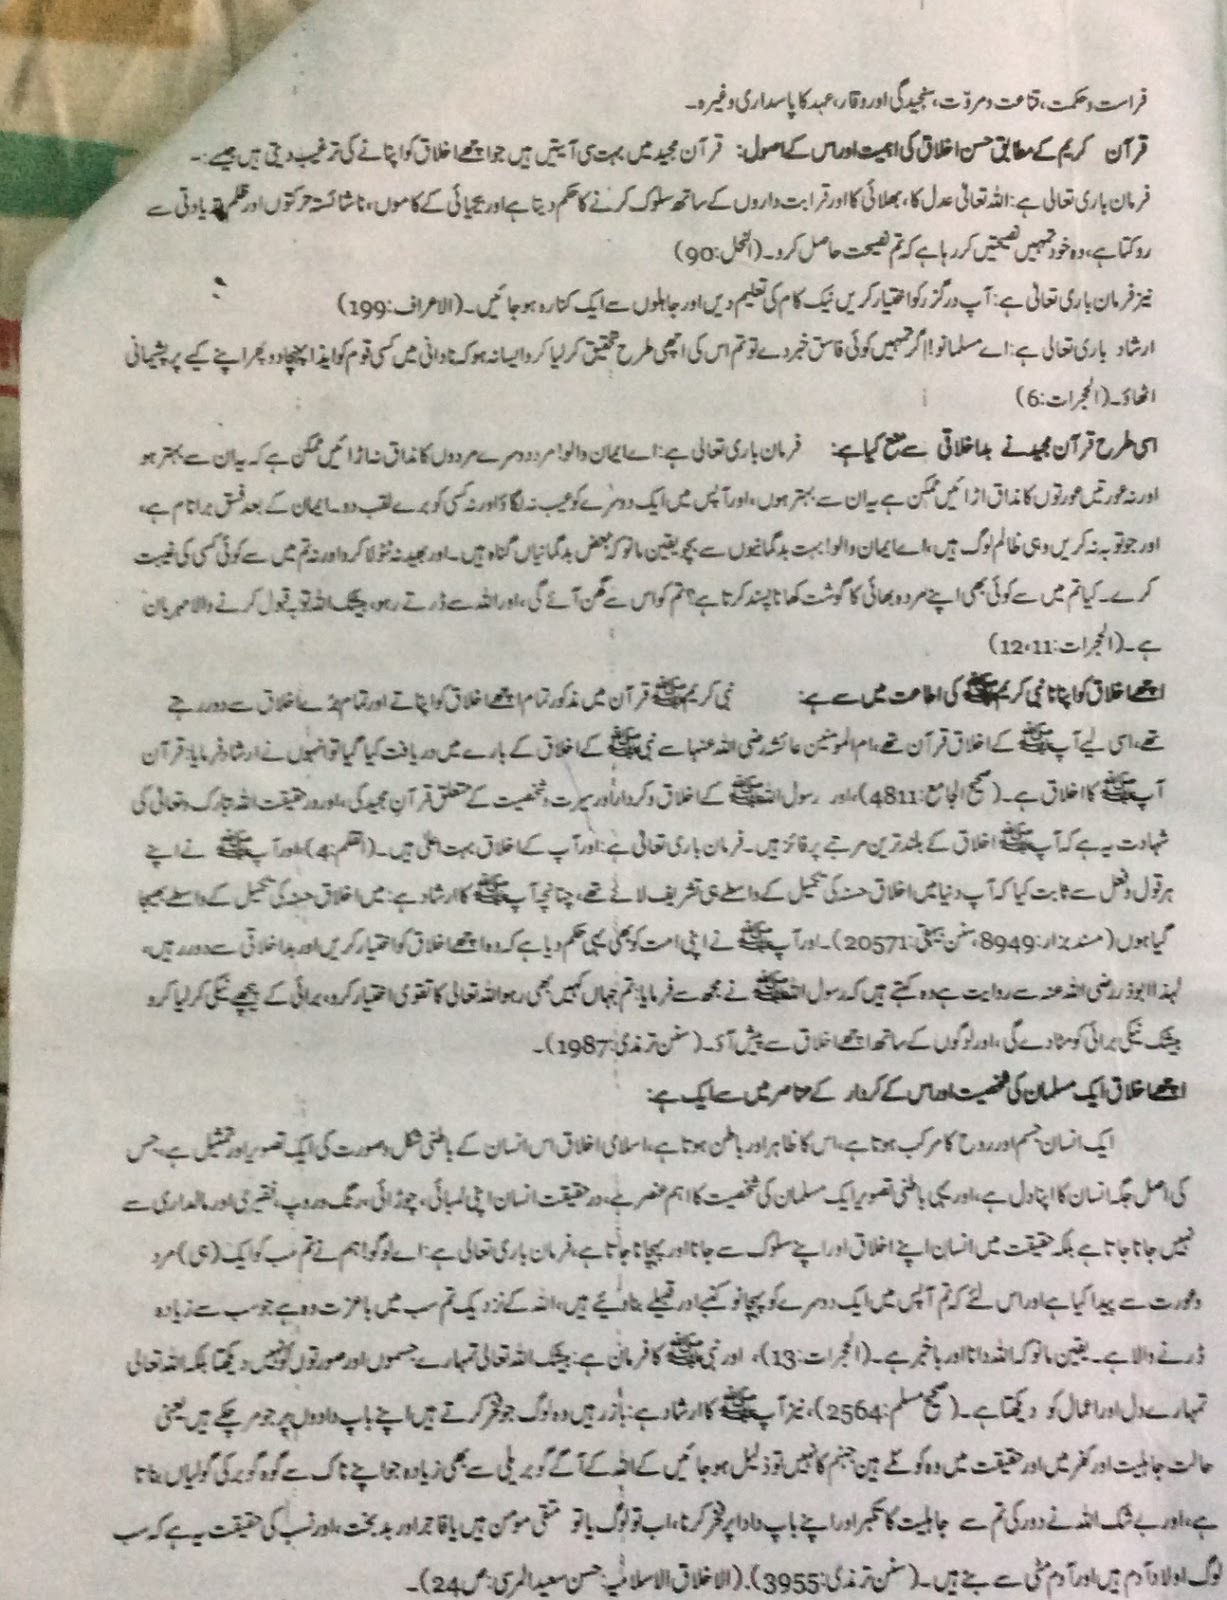 فراست وحکمت، قناعت ومروّت، سنجیدگی اور وقار، عہد کا پاسداری وغیرہ۔
قرآن کریم کے مطابق حسن اخلاق کی اہمیت اور اس کے اصول: قرآن مجید میں بہت سی آیتیں ہیں جو اچھے اخلاق کو اپنانے کی ترغیب دیتی ہیں جیسے:۔
فرمان باری تعالیٰ ہے: اللہ تعالیٰ عدل کا، بھلائی کا اور قرابت داروں کے ساتھ سلوک کرنے کا حکم دیتا ہے اور بےحیائی کے کاموں، ناشائستہ حرکتوں اور ظلم وزیادتی سے
روکتا ہے، وہ خود تمہیں نصیحتیں کر رہا ہے کہ تم نصیحت حاصل کرو۔ (النحل:90)
نیز فرمان باری تعالیٰ ہے: آپ درگزر کو اختیار کریں نیک کام کی تعلیم دیں اور جاہلوں سے ایک کنارہ ہو جائیں۔ (الاعراف:199)
ارشاد باری تعالیٰ ہے: اے مسلمانو! اگر تمہیں کوئی فاسق خبر دے تو تم اس کی اچھی طرح تحقیق کر لیا کرو ایسا نہ ہو کہ نادانی میں کسی قوم کو ایذا پہنچا دو پھر اپنے کیے پر پشیمانی
اٹھاؤ۔ (الحجرات:6)
اسی طرح قرآن مجید نے بداخلاقی سے منع کیا ہے: فرمان باری تعالیٰ ہے: اے ایمان والو! مرد دوسرے مردوں کا مذاق نہ اڑائیں ممکن ہے کہ یہ ان سے بہتر ہو
اور نہ عورتیں عورتوں کا مذاق اڑائیں ممکن ہے یہ ان سے بہتر ہوں، اور آپس میں ایک دوسرے کو عیب نہ لگاؤ اور نہ کسی کو برے لقب دو۔ ایمان کے بعد فسق برا نام ہے،
اور جو توبہ نہ کریں وہی ظالم لوگ ہیں، اے ایمان والو! بہت بدگمانیوں سے بچو یقین مانو کہ بعض بدگمانیاں گناہ ہیں۔ اور بھید نہ ٹٹولا کرو اور نہ تم میں سے کوئی کسی کی غیبت
کرے۔ کیا تم میں سے کوئی بھی اپنے مردہ بھائی کا گوشت کھانا پسند کرتا ہے؟ تم کو اس سے گھن آئے گی، اور اللہ سے ڈرتے رہو، بیشک اللہ توبہ قبول کرنے والا مہربان
ہے۔ (الحجرات:12،11)
اچھے اخلاق کو اپنانا نبی کریم ﷺ کی اطاعت میں سے ہے: نبی کریم ﷺ قرآن میں مذکور تمام اچھے اخلاق کو اپناتے اور تمام برے اخلاق سے دور رہتے
تھے، اسی لیے آپ ﷺ کے اخلاق قرآن تھے، ام المومنین عائشہ رضی اللہ عنہا سے نبی ﷺ کے اخلاق کے بارے میں دریافت کیا گیا تو انہوں نے ارشاد فرمایا: قرآن
آپ ﷺ کا اخلاق ہے۔ (صحیح الجامع:4811)، اور رسول اللہ ﷺ کے اخلاق وکردار اور سیرت وشخصیت کے متعلق قرآن مجید کی، اور در حقیقت اللہ تبارک وتعالیٰ کی
شہادت یہ ہے کہ آپ ﷺ اخلاق کے بلند ترین مرتبے پر فائز ہیں۔ فرمان باری تعالیٰ ہے: اور آپ کے اخلاق بہت اعلیٰ ہیں۔ (القلم:4)، اور آپ ﷺ نے اپنے
ہر قول وفعل سے ثابت کیا کہ آپ دنیا میں اخلاق حسنہ کی تکمیل کے واسطے ہی تشریف لائے تھے، چنانچہ آپ ﷺ کا ارشاد ہے: میں اخلاق حسنہ کی تکمیل کے واسطے بھیجا
گیا ہوں (مسند بزار:8949، سنن بیہقی:20571)۔ اور آپ ﷺ نے اپنی امت کو بھی یہی حکم دیا ہے کہ وہ اچھے اخلاق کو اختیار کریں اور بداخلاقی سے دور رہیں،
لہذا ابوذر رضی اللہ عنہ سے روایت ہے وہ کہتے ہیں کہ رسول اللہ ﷺ نے مجھ سے فرمایا: تم جہاں کہیں بھی رہو اللہ تعالیٰ کا تقویٰ اختیار کرو، برائی کے پیچھے نیکی کر لیا کرو
بیشک نیکی برائی کو مٹا دے گی، اور لوگوں کے ساتھ اچھے اخلاق سے پیش آؤ۔ (سنن ترمذی:1987)۔
اچھے اخلاق ایک مسلمان کی شخصیت اور اس کے کردار کے عناصر میں سے ایک ہے:
ایک انسان جسم اور روح کا مرکب ہوتا ہے، اس کا ظاہر اور باطن ہوتا ہے، اسلامی اخلاق اس انسان کے باطنی شکل وصورت کی ایک تصویر اور تمثیل ہے، جس
کی اصل جگہ انسان کا اپنا دل ہے، اور یہی باطنی تصویر ایک مسلمان کی شخصیت کا اہم عنصر ہے، در حقیقت انسان اپنی لمبائی، چوڑائی، رنگ وروپ، فقیری اور مالداری سے
نہیں جانا جاتا ہے بلکہ حقیقت میں انسان اپنے اخلاق اور اپنے سلوک سے جانا اور پہچانا جاتا ہے، فرمان باری تعالیٰ ہے: اے لوگو! ہم نے تم سب کو ایک (ہی) مرد
وعورت سے پیدا کیا ہے اور اس لئے کہ تم آپس میں ایک دوسرے کو پہچانو کنبے اور قبیلے بنا دیئے ہیں، اللہ کے نزدیک تم سب میں باعزت وہ ہے جو سب سے زیادہ
ڈرنے والا ہے۔ یقین مانو کہ اللہ دانا اور باخبر ہے۔ (الحجرات:13)، اور نبی ﷺ کا فرمان ہے: بیشک اللہ تعالیٰ تمہارے جسموں اور صورتوں کو نہیں دیکھتا بلکہ اللہ تعالیٰ
تمہارے دل اور اعمال کو دیکھتا ہے۔ (صحیح مسلم:2564)، نیز آپ ﷺ کا ارشاد ہے: باز رہیں وہ لوگ جو فخر کرتے ہیں اپنے باپ دادوں پر جو مر چکے ہیں یعنی
حالت جاہلیت اور کفر میں اور حقیقت میں وہ کوئلے ہیں جہنم کا نہیں تو ذلیل ہو جائیں گے اللہ کے آگے گوبریلی سے بھی زیادہ جو اپنے ناک سے گوہ گوبر کی گولیاں بناتا
ہے، اور بے شک اللہ نے دور کی تم سے جاہلیت کا تکبر اور اپنے باپ دادا پر فخر کرنا، اب تو لوگ یا تو متقی مومن ہیں یا فاجر اور بدبخت، اور نسب کی حقیقت یہ ہے کہ سب
لوگ اولاد آدم ہیں اور آدم مٹی سے بنے ہیں۔ (سنن ترمذی:3955)۔ (الاخلاق الاسلامیہ: حسن سعید المرسی: ص24)۔